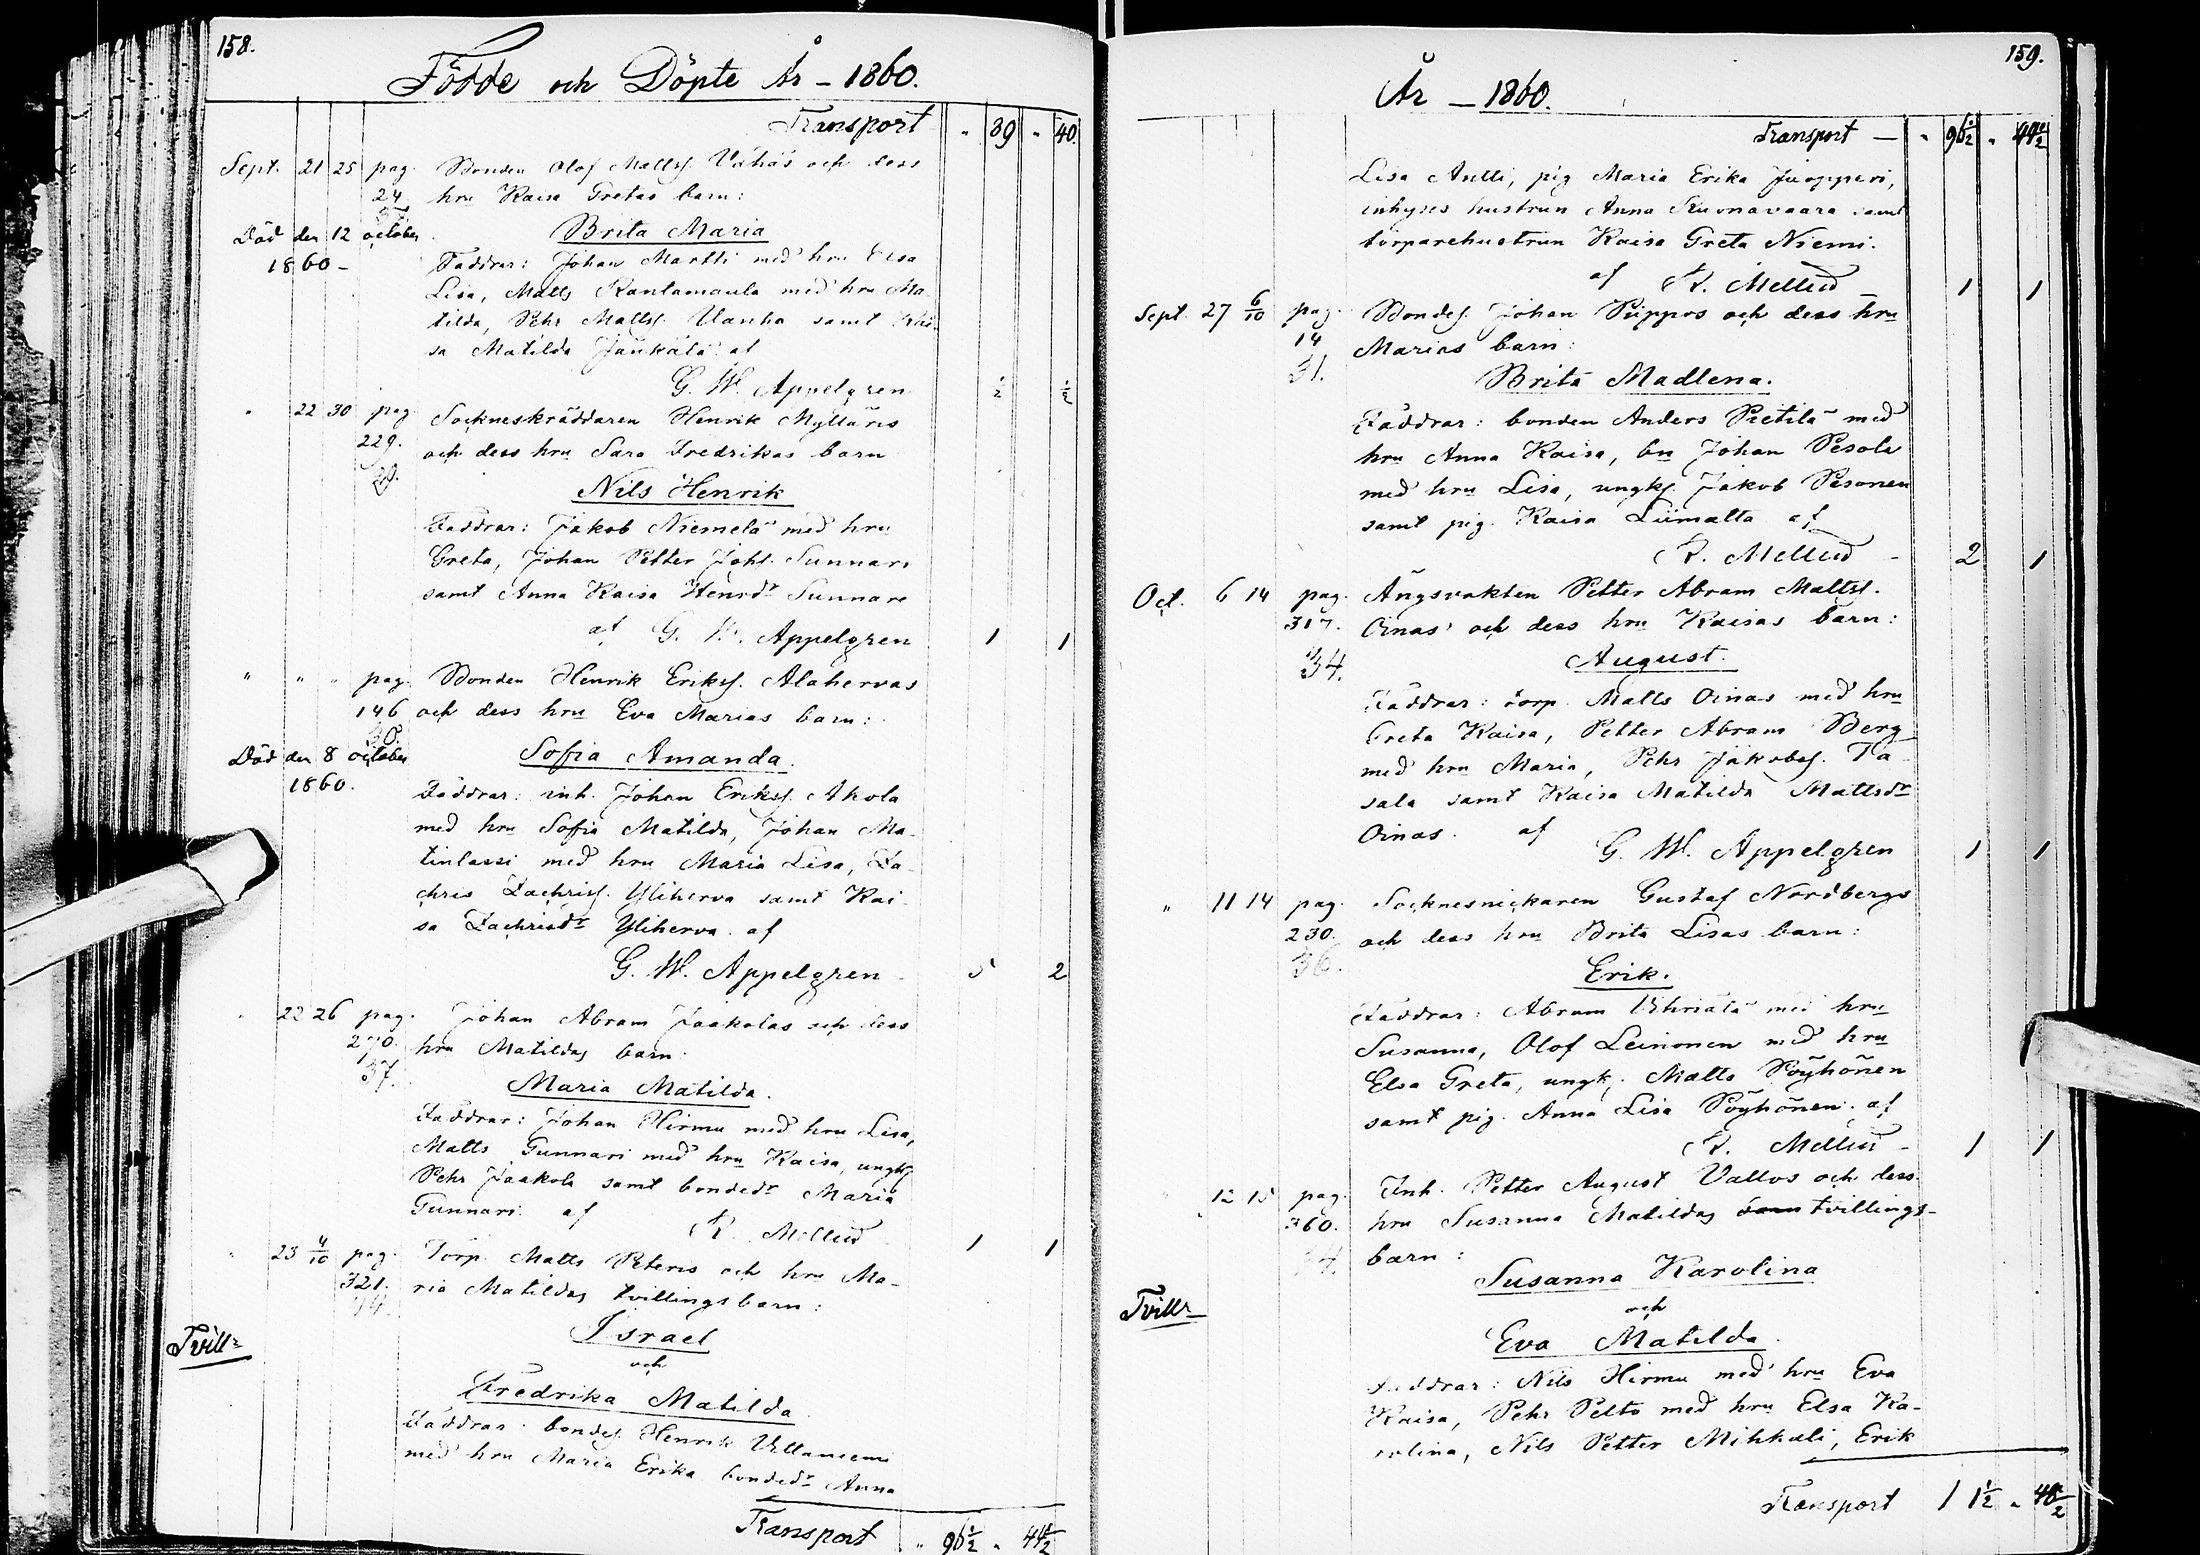 158.
Födde och Döpte År - 1860.
Transport " 39 " 40.
Sept. 21 25 pag. Bonden Olof Mattss. Vähäs och dess
24 hru Kaisa Gretas barn:
37
Död den 12 october Brita Maria
1860 -
Faddrar: Johan Martti med hru Elsa
Lisa, Matts Rantamaula med hru Ma-
tilda, Pehr Mattss. Vanha samt Kai-
sa Matilda Jäükälä af
G. W. Appelgren ½ ½
" 22 30 pag. Sockneskräddaren Henrik Mylläris
229. och dess hru Sara Fredrikas barn
29.
Nils Henrik
Faddrar: Jakob Niemelä med hru
Greta, Johan Petter Johs. Sunnari
samt Anna Kaisa Henrdr Sunnare
af G. W. Appelgren 1 1
" " " pag. Bonden Henrik Erikss. Alahervas
146 och dess hru Eva Marias barn:
30.
Död den 8 october Sofia Amanda.
1860.
Faddrar: inh. Johan Erikss. Akola
med hru Sofia Matilda, Johan Ma-
tinlassi med hru Maria Lisa, Za-
chris Zachriss. Yliherva samt Kai-
sa Zachrisdr Yliherva. af
G. W. Appelgren 5 2
" 22 26 pag. Johan Abram Jaakolas och dess
270. hru Matildas barn:
37.
Maria Matilda.
Faddrar: Johan Hirmu med hru Lisa,
Matts Gunnari med hru Kaisa, ungk.
Pehr Jaakola samt bondedr Maria
Gunnari. af
R. Mellud 1 1
" 23 4/10 pag. Torp. Matts Peteris och hru Ma-
321. ria Matildas tvillingsbarn:
Tvillr
Israel
och
Fredrika Matilda
Faddrar: bondes. Henrik
med hru Maria Erika bondedr Anna
Transport " 96½ " 44½
159.
År - 1860.
Transport - " 96½ " 44½
Lisa Antti, pig Maria Erika Juopperi,
inhyses hustrun Anna Kuonavaara samt
torparehustrun Kaisa Greta Niemi.
af R. Mellud 1 1
Sept. 27 6/10 pag. Bondes. Johan Piippos och dess hru
14 Marias barn:
31.
Brita Madlena.
Faddrar: bonden Anders Pietilä med
hru Anna Kaisa, bn Johan Pesola
med hru Lisa, ungk. Jakob Pesonen
samt pig. Kaisa Liimatta af
R. Mellud - 2 1
Oct. 6 14 pag. Ängsvakten Petter Abram Mattss.
317. Oinas' och dess hru Kaisas barn:
34.
August.
Faddrar: torp. Matts Oinas med hru
Greta Kaisa, Petter Abram Berg
med hru Maria, Pehr Jakobss. Ta-
sala samt Kaisa Matilda Mattsdr
Oinas. af
G. W. Appelgren 1 1
" 11 14 pag. Socknesnickaren Gustaf Nordbergs
230. och dess hru Brita Lisas barn:
36.
Erik.
Faddrar: Abram med hru
Susanna, Olof Leinonen med hru
Elsa Greta, ungk. Matts Pöyhönen
samt pig. Anna Lisa Pöyhönen. af
R. Mellud - 1 1
" 12 15 pag. Inh. Petter August Vallos och dess
360. hru Susanna Matildas barn tvillings-
barn:
Tvillr
Susanna Karolina
och
Eva Matilda.
Faddrar: Nils Hirmu med hru Eva
Kaisa, Pehr Pelto med hru Elsa Ka-
rolina, Nils Petter Mihkali, Erik
Transport 1 1½ " 48½